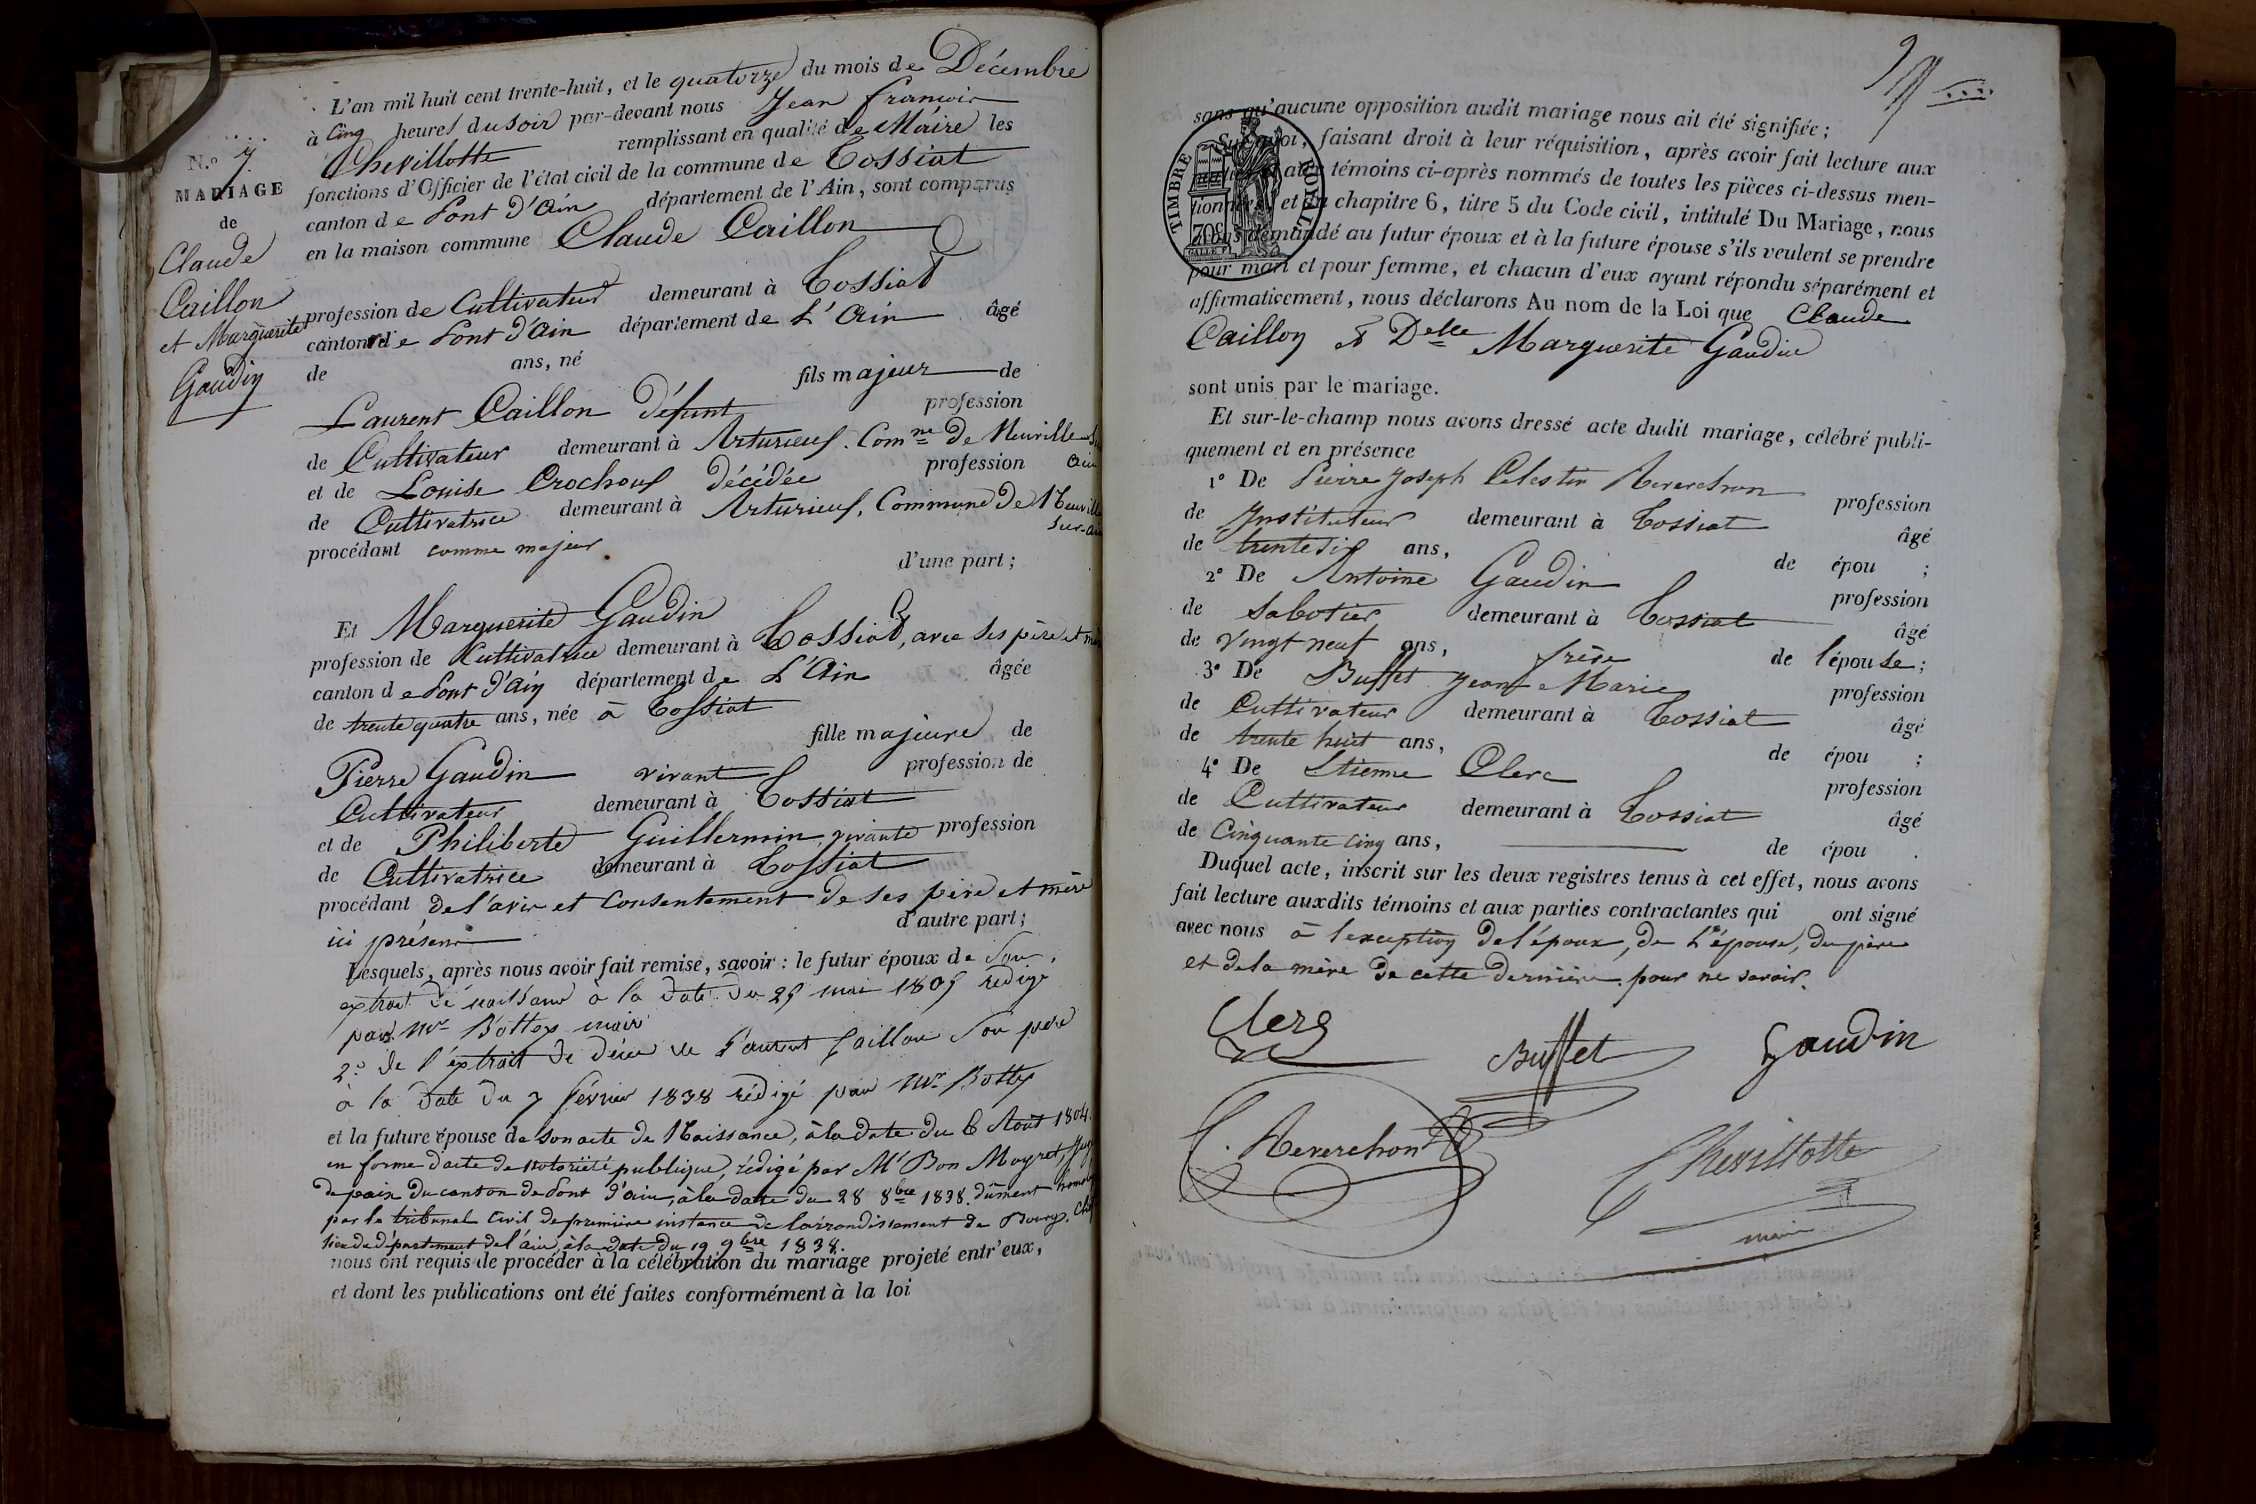 N.º 7.
MARIAGE
de
Claude
Caillon
et Marguerite
Gaudin
L'an mil huit cent trente-huit, et le quatorze du mois de Décembre
à Cinq heures du soir par-devant nous Jean françois
Chevillotte remplissant en qualité de Maire les
fonctions d'Officier de l'état civil de la commune de Tossiat
canton de Pont d'ain département de l'Ain, sont comparus
en la maison commune Claude Caillon
profession de Cultivateur demeurant à Tossiat
canton de Pont d'ain département de L'Ain âgé
de ans, né fils majeur de
Laurent Caillon défunt profession
de Cultivateur demeurant à Arturieux. Comne De Neuville Sur
ain
et de Louise Crochoux décédée profession
de Cultivatrice demeurant à Arturieux, Commune De Neuville
Sur-ain
procédant comme majeur
d'une part;
Et Marguerite Gaudin
profession de Cultivatrice demeurant à Tossiat, avec ses père et mère
canton de Pont d'Ain département de L'Ain âgée
de trente quatre ans, née à Tossiat
fille majeure de
Pierre Gaudin vivant profession de
Cultivateur demeurant à Tossiat
et de Philiberte Guillermin vivante profession
de Cultivatrice demeurant à Tossiat
procédant de l'avis et Consentement de ses père et mère
ici présens d'autre part;
Lesquels, après nous avoir fait remise, savoir : le futur époux de Son
extrait de naissance à la date du 25 mai 1805 redigé
par Mr Bottex maire
2.º de l'extrait de décès de Laurent Caillon Son père
à la date du 7 février 1838 rédigé par Mr Bottex
et la future épouse de son acte de Naissance, à la date du 6 Août 1804.
en forme d'acte de notoriété publique, rédigé par Mr Bon Moyret, Juge
de paix du canton de Pont d'ain, à la date du 28 8bre 1838. dûment homolo
par le tribunal Civil de première instance de l'arrondissement de Bourg. Chef
lieu du département de l'ain, à la date du 19 9bre 1838.
nous ont requis de procéder à la célébration du mariage projeté entr'eux,
et dont les publications ont été faites conformément à la loi
sans qu'aucune opposition audit mariage nous ait été signifiée;
Sur quoi, faisant droit à leur réquisition, après avoir fait lecture aux
parties et aux témoins ci-après nommés de toutes les pièces ci-dessus men-
tionnées, et du chapitre 6, titre 5 du Code civil, intitulé Du Mariage, nous
avons demandé au futur époux et à la future épouse s'ils veulent se prendre
pour mari et pour femme, et chacun d'eux ayant répondu séparément et
affirmativement, nous déclarons Au nom de la Loi que Claude
Caillon & Delle Marguerite Gaudin
TIMBRE ROYAL
sont unis par le mariage.
Et sur-le-champ nous avons dressé acte dudit mariage, célébré publi-
quement et en présence
1º De Pierre Joseph Celestin Reverchon profession
de Instituteur demeurant à Tossiat âgé
de trente six ans, de épou ;
2º De Antoine Gaudin profession
de Sabotier demeurant à Tossiat âgé
de vingt neuf ans, frère de l'épouse;
3º De Buffet Jean Marie profession
de Cultivateur demeurant à Tossiat âgé
de trente huit ans, de épou ;
4º De Etienne Clerc profession
de Cultivateur demeurant à Tossiat âgé
de Cinquante cinq ans, de épou .
Duquel acte, inscrit sur les deux registres tenus à cet effet, nous avons
fait lecture auxdits témoins et aux parties contractantes qui ont signé
avec nous à l'exception de l'époux, de l'épouse, du père
et de la mère de cette dernière pour ne savoir.
Clerc
Buffet
Gaudin
C. Reverchon
Chevillotte
maire